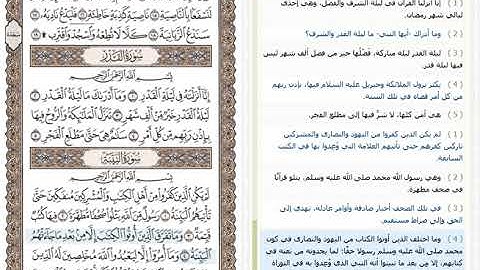 ( 1 ) إنا أنزلنا القرآن في ليلة الشرف والفضل، وهي إحدى
ليالي شهر رمضان.
( 2 ) وما أدراك -أيها النبي- ما ليلة القدر والشرف؟
( 3 ) ليلة القدر ليلة مباركة، فضلها خير من فضل ألف شهر ليس
فيها ليلة قدر.
( 4 ) يكثر نزول الملائكة وجبريل عليه السلام فيها، بإذن ربهم من
كل أمر قضاه في تلك السنة.
( 5 ) هي أمن كلها، لا شرَّ فيها إلى مطلع الفجر.
( 1 ) لم يكن الذين كفروا من اليهود والنصارى والمشركين
تاركين كفرهم حتى تأتيهم العلامة التي وُعِدوا بها في الكتب
السابقة.
( 2 ) وهي رسول الله محمد صلى الله عليه وسلم، يتلو قرآنًا
في صحف مطهرة.
( 3 ) في تلك الصحف أخبار صادقة وأوامر عادلة، تهدي إلى
الحق وإلى صراط مستقيم.
( 4 ) وما اختلف الذين أوتوا الكتاب من اليهود والنصارى في كون
محمد صلى الله عليه وسلم رسولا حقًا؛ لما يجدونه من نعته في
كتابهم، إلا من بعد ما تبينوا أنه النبي الذي وُعِدوا به في التوراة
لَنَسْفَعًۢا بِٱلنَّاصِيَةِ ١٥ نَاصِيَةٍ كَٰذِبَةٍ خَاطِئَةٍ ١٦ فَلْيَدْعُ نَادِيَهُۥ ١٧
سَنَدْعُ ٱلزَّبَانِيَةَ ١٨ كَلَّا لَا تُطِعْهُ وَٱسْجُدْ وَٱقْتَرِب ۩ ١٩
سُورَةُ القَدْرِ
بِسْمِ ٱللَّهِ ٱلرَّحْمَٰنِ ٱلرَّحِيمِ
إِنَّآ أَنزَلْنَٰهُ فِى لَيْلَةِ ٱلْقَدْرِ ١ وَمَآ أَدْرَىٰكَ مَا لَيْلَةُ ٱلْقَدْرِ ٢
لَيْلَةُ ٱلْقَدْرِ خَيْرٌ مِّنْ أَلْفِ شَهْرٍ ٣ تَنَزَّلُ ٱلْمَلَٰٓئِكَةُ وَٱلرُّوحُ فِيهَا
بِإِذْنِ رَبِّهِم مِّن كُلِّ أَمْرٍ ٤ سَلَٰمٌ هِىَ حَتَّىٰ مَطْلَعِ ٱلْفَجْرِ ٥
سُورَةُ البَيِّنَةِ
بِسْمِ ٱللَّهِ ٱلرَّحْمَٰنِ ٱلرَّحِيمِ
لَمْ يَكُنِ ٱلَّذِينَ كَفَرُوا۟ مِنْ أَهْلِ ٱلْكِتَٰبِ وَٱلْمُشْرِكِينَ مُنفَكِّينَ حَتَّىٰ
تَأْتِيَهُمُ ٱلْبَيِّنَةُ ١ رَسُولٌ مِّنَ ٱللَّهِ يَتْلُوا۟ صُحُفًا مُّطَهَّرَةً ٢ فِيهَا كُتُبٌ
قَيِّمَةٌ ٣ وَمَا تَفَرَّقَ ٱلَّذِينَ أُوتُوا۟ ٱلْكِتَٰبَ إِلَّا مِنۢ بَعْدِ مَا جَآءَتْهُمُ
ٱلْبَيِّنَةُ ٤ وَمَآ أُمِرُوٓا۟ إِلَّا لِيَعْبُدُوا۟ ٱللَّهَ مُخْلِصِينَ لَهُ ٱلدِّينَ